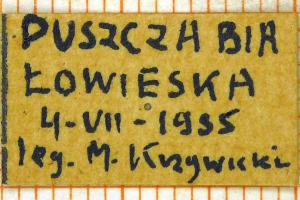 PUSZCZA BIA
ŁOWIESKA
4-VII-1955
leg. M. Krzywicki